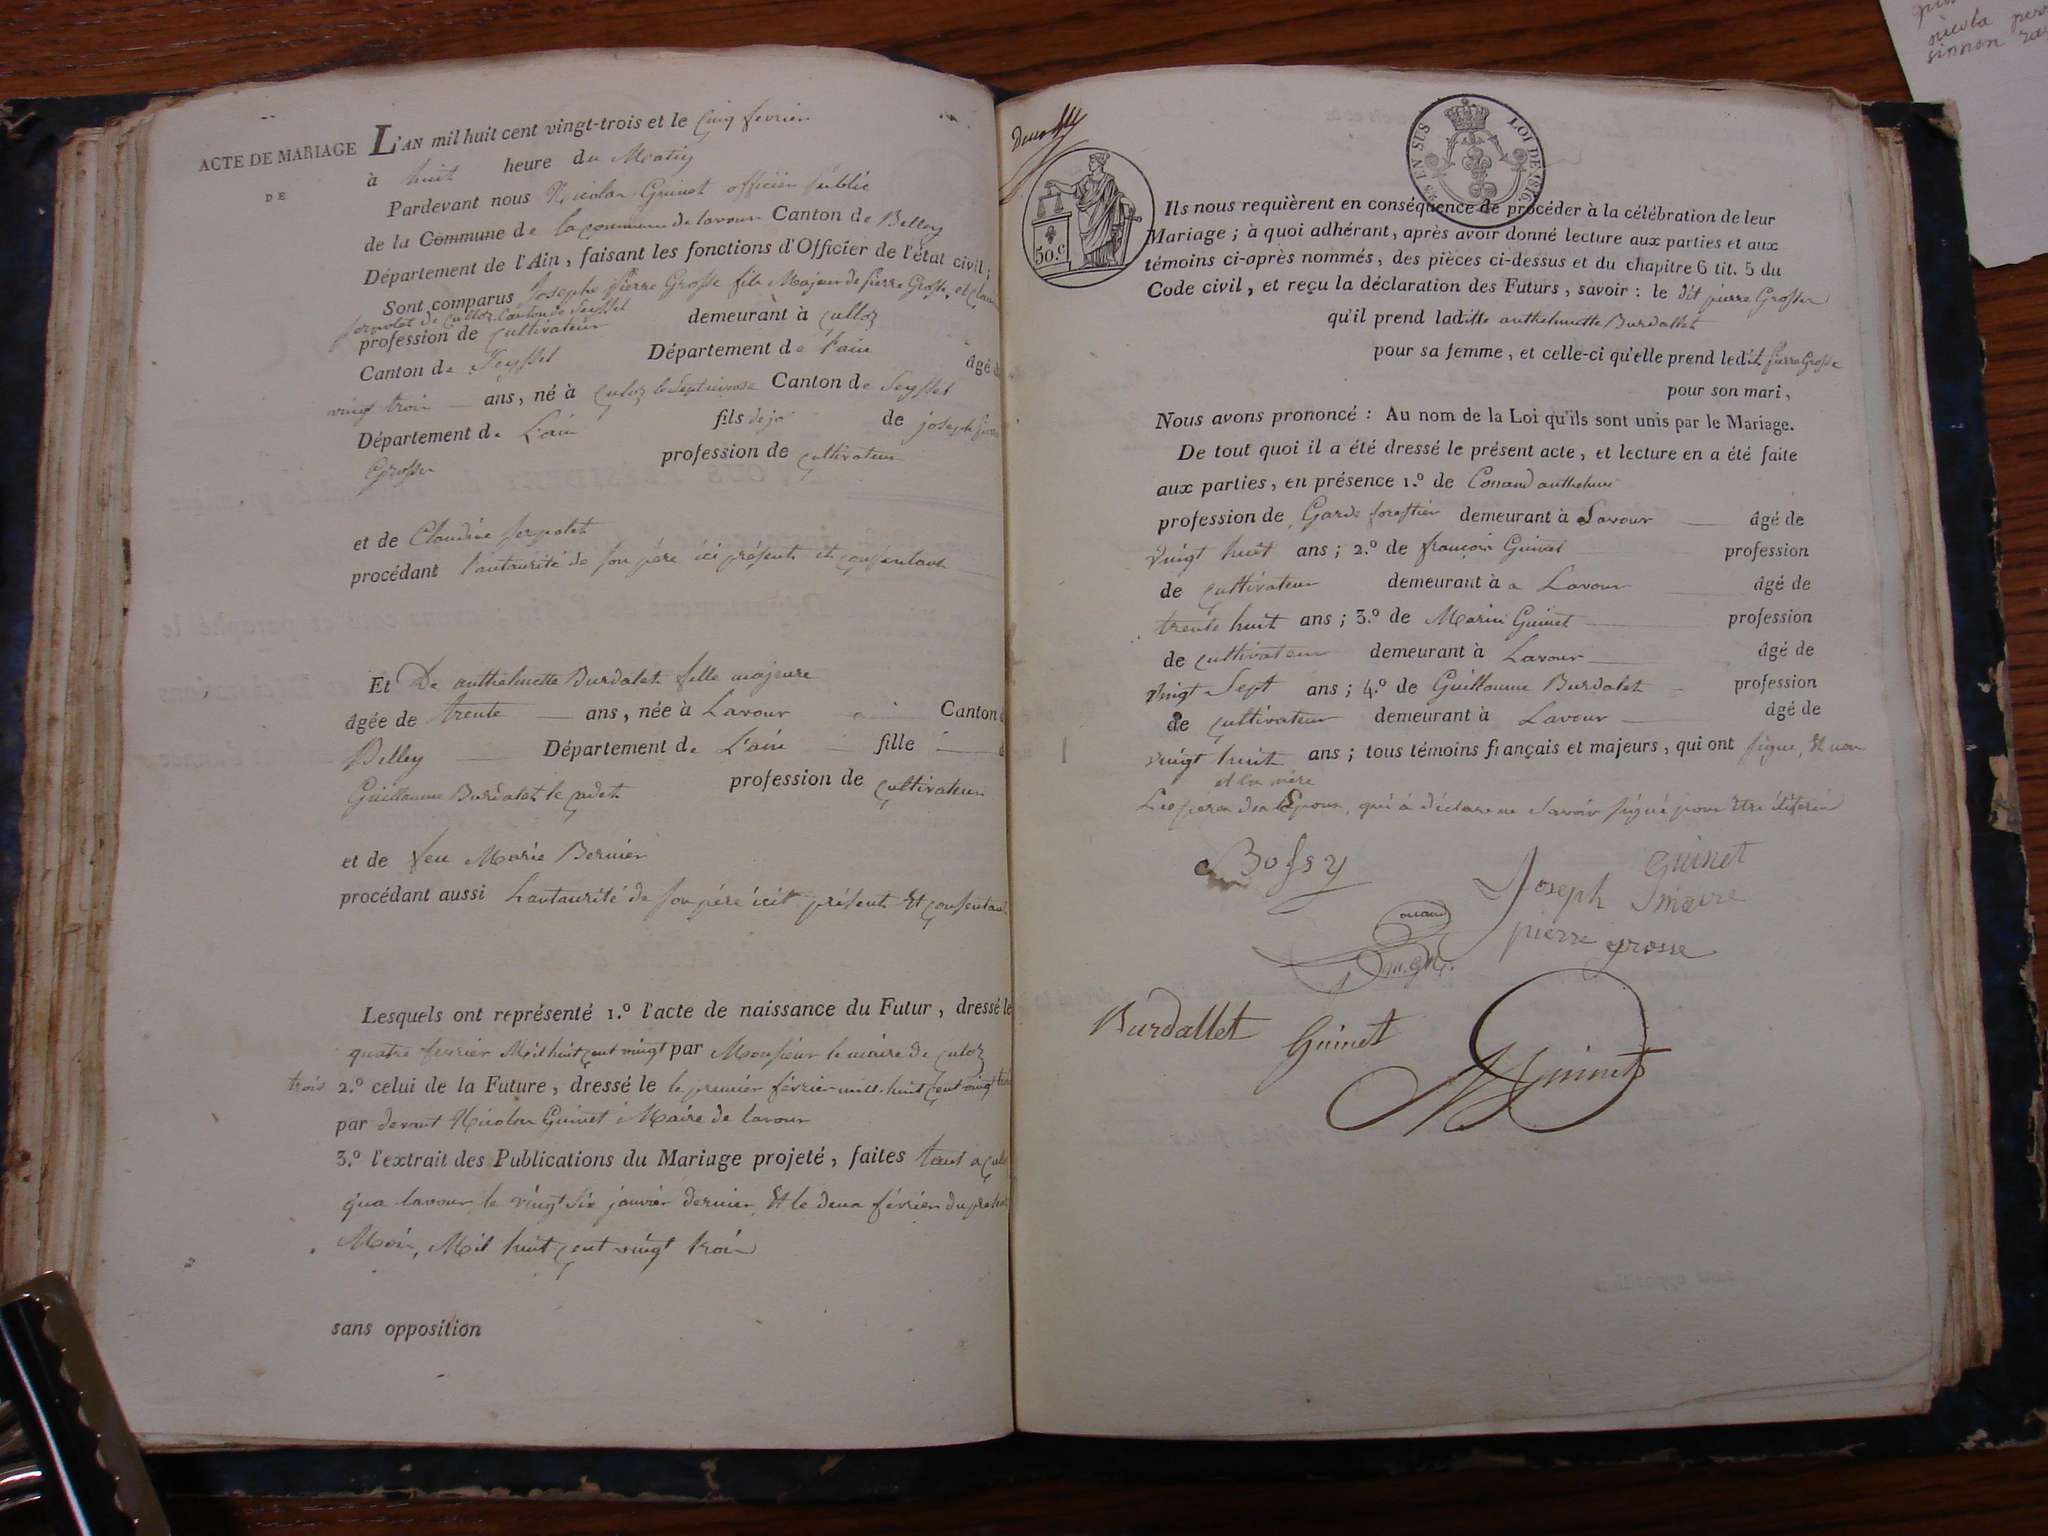 ACTE DE MARIAGE
DE
L'AN mil huit cent vingt-trois et le cinq fevrier
à huit heure du Matin
Pardevant nous Nicolas Guinet officier public
de la Commune de la commune de lavour Canton de Belley
Département de l'Ain, faisant les fonctions d'Officier de l'état civil;
Sont comparus Joseph Pierre Grosse fils Majeur de pierre Grosse, et
serpolet de culloz Canton de Seyssel
profession de cultivateur demeurant à culloz
Canton de Seyssel Département de l'ain âgé d
vingt trois ans, né à culoz le Canton de Seyssel
Département de L'ain fils de jo de joseph
Grosse profession de cultivateur
et de Claudine serpolet
procédant l'autaurité de son père ici présent et consentant
Et De anthelmette Burdalet fille majeure
âgée de trente ans, née à Lavour Canton d
Belley Département de L'ain fille
Guillaume Burdalet le cadet profession de cultivateur
et de feu Marie Bernier
procédant aussi L'autaurité de son père icit présent Et consentant
Lesquels ont représenté 1.º l'acte de naissance du Futur, dressé le
quatre fevrier Mil huit cent vingt par Monsieur le maire de culoz
trois 2.º celui de la Future, dressé le le premier février mill huit cent vingt
par devant Nicolas Guinet Maire de lavour
3.º l'extrait des Publications du Mariage projeté, faites tant a
qua lavour le vingt six janvier dernier, Et le deux février du present
Mois, Mil huit cent vingt trois
sans opposition
EN SUS LOI DE 1816
50.c
Ils nous requièrent en conséquence de procéder à la célébration de leur
Mariage; à quoi adhérant, après avoir donné lecture aux parties et aux
témoins ci-après nommés, des pièces ci-dessus et du chapitre 6 tit. 5 du
Code civil, et reçu la déclaration des Futurs, savoir: le dit pierre Grosse
qu'il prend ladite anthelmette Burdallet
pour sa femme, et celle-ci qu'elle prend ledit pierre Grosse
pour son mari,
Nous avons prononcé: Au nom de la Loi qu'ils sont unis par le Mariage.
De tout quoi il a été dressé le présent acte, et lecture en a été faite
aux parties, en présence 1.º de Conand anthelme
profession de Garde forestier demeurant à Lavour âgé de
vingt huit ans; 2.º de françois Guinet profession
de cultivateur demeurant à a Lavour âgé de
trente huit ans; 3.º de Marin Guinet profession
de cultivateur demeurant à Lavour âgé de
vingt Sept ans; 4.º de Guillaume Burdalet profession
de cultivateur demeurant à Lavour âgé de
vingt huit ans; tous témoins français et majeurs, qui ont signe, Et non
et la mère
Les peres des Epoux, qui à déclare ne Savoir signé pour être
Bossy
Guinet
Joseph maire
pierre grosse
Burdallet Guinet
Guinet